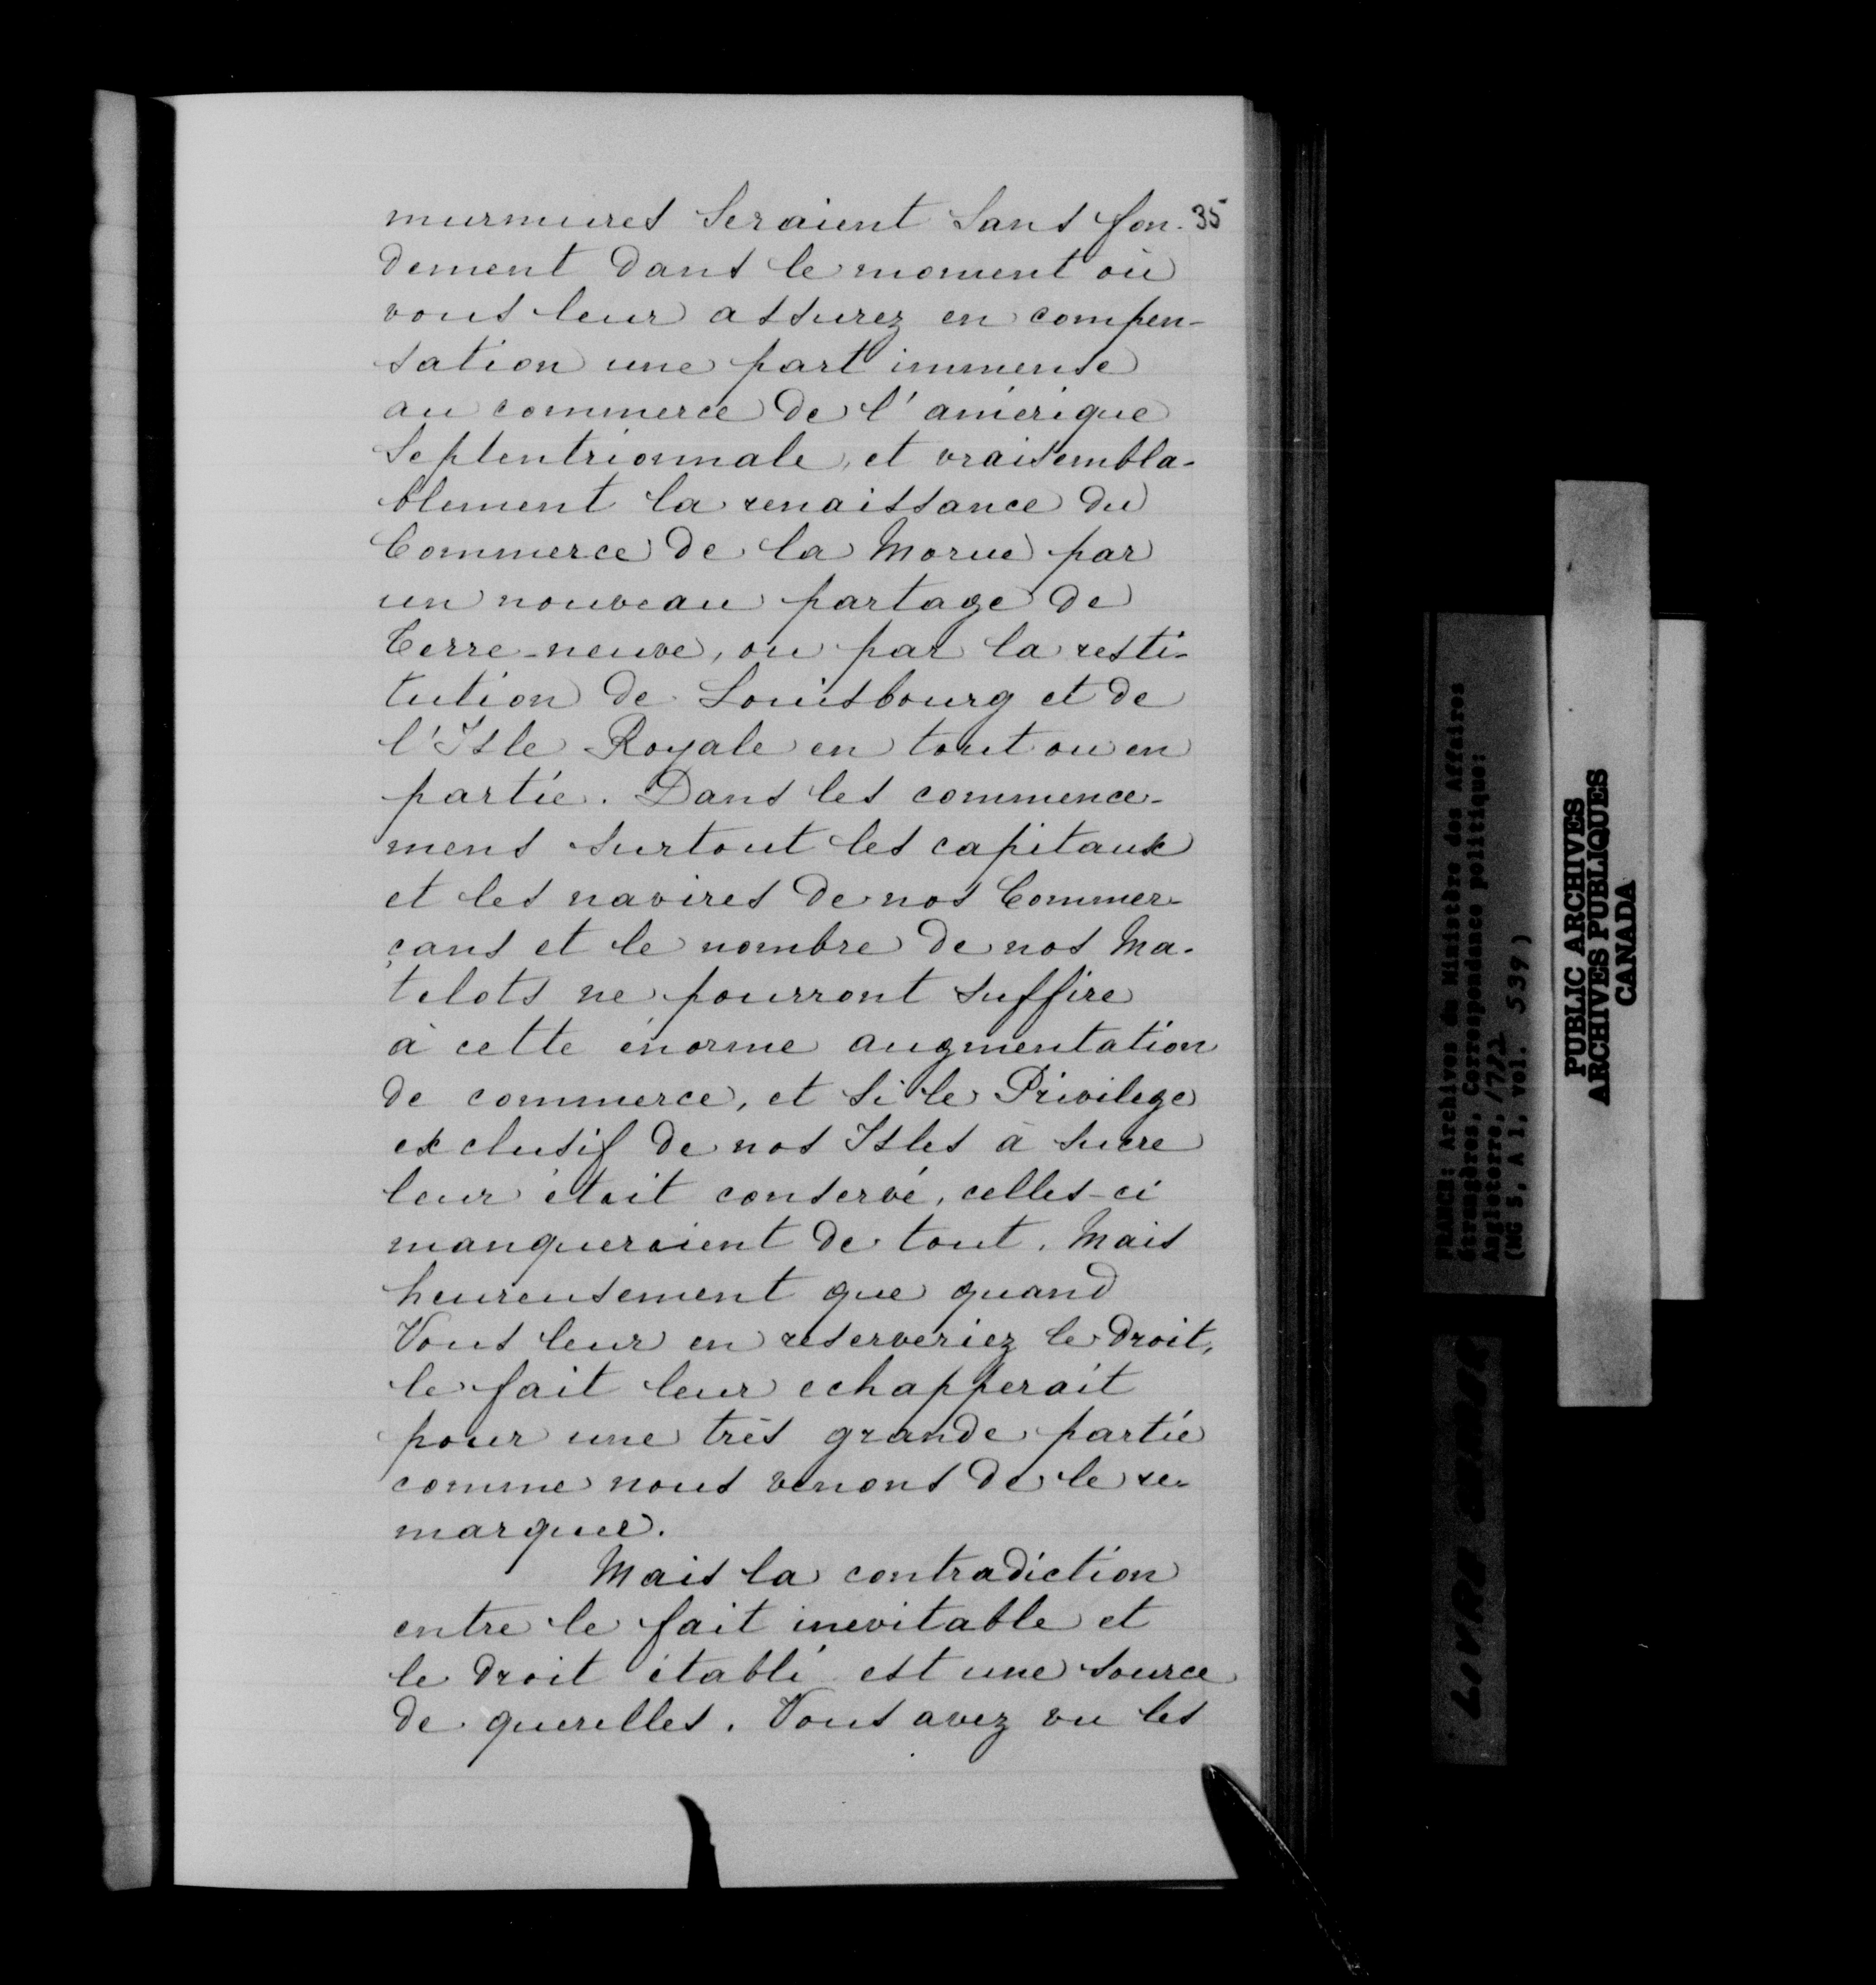 murmures seraient sans fon- 35
dement dans le moment où
vous leur assurez en compen-
sation une part immense
au commerce de l'amérique
Septentrionnale, et vraisembla-
blement la renaissance du
Commerce de la Morue par
un nouveau partage de
Terre-neuve, ou par la resti-
tution de Louisbourg et de
l'Isle Royale en tout ou en
partie. Dans les commence-
mens surtout les capitaux
et les navires de nos Commer-
çans et le nombre de nos Ma-
telots ne pourront suffire
à cette énorme augmentation
de commerce, et si le Privilege
exclusif de nos Isles à sucre
leur était conservé, celles-ci
manqueraient de tout. Mais
heureusement que quand
Vous leur en reserveriez le droit,
le fait leur echapperait
pour une très grande partie
comme nous venons de le re-
marquer.
Mais la contradiction
entre le fait inevitable et
le droit établi est une source
de querelles. Vous avez vu les
FRANCE: Archives du Ministère des Affaires
étrangères, Correspondance politique:
Angleterre, 1722
(MG 5, A 1, vol. 539)
PUBLIC ARCHIVES
ARCHIVES PUBLIQUES
CANADA
LIVRE